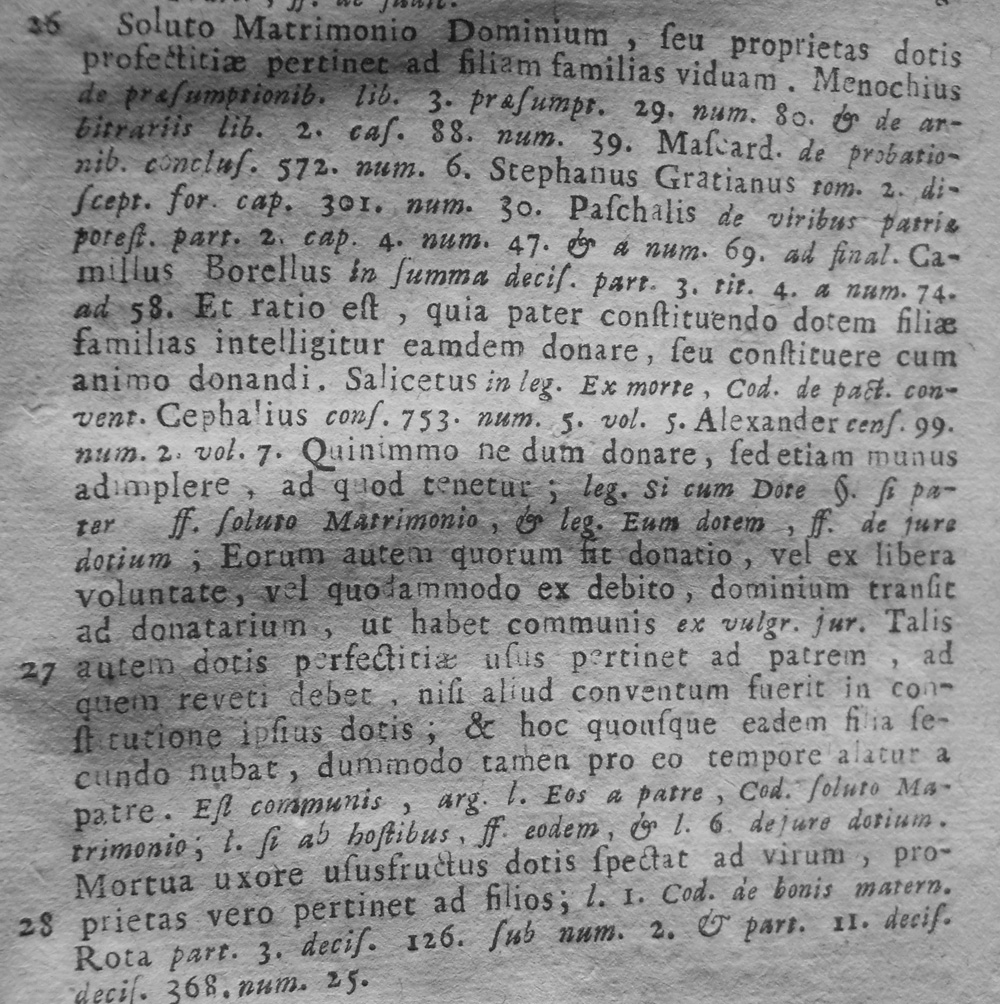 26 Soluto Matrimonio Dominium , ſeu proprietas dotis
profectitiæ pertinet ad filiam familias viduam . Menochius
de præſumptionib. lib. 3. præſumpt. 29. num. 80. & de ar-
bitrariis lib. 2. caſ. 88. num. 39. Maſcard. de probatio-
nib. concluſ. 572. num. 6. Stephanus Gratianus tom. 2. di-
ſcept. for. cap. 301. num. 30. Paſchalis de viribus patriæ
poteſt. part. 2. cap. 4. num. 47. & a num. 69. ad final. Ca-
millus Borellus in ſumma deciſ. part. 3. tit. 4. a num. 74.
ad 58. Et ratio eſt , quia pater conſtituendo dotem filiæ
familias intelligitur eamdem donare, ſeu conſtituere cum
animo donandi. Salicetus in leg. Ex morte, Cod. de pact. con-
vent. Cephalius conſ. 753. num. 5. vol. 5. Alexander cenſ. 99.
num. 2. vol. 7. Quinimmo ne dum donare, ſed etiam munus
adimplere , ad quod tenetur ; leg. Si cum Dote §. ſi pa-
ter ff. ſoluto Matrimonio, & leg. Eum dotem , ff. de jure
dotium ; Eorum autem quorum fit donatio , vel ex libera
voluntate, vel quodammodo ex debito , dominium tranſit
ad donatarium , ut habet communis ex vulgr. jur. Talis
27 autem dotis perfectitiæ uſus pertinet ad patrem , ad
quem reveti debet , niſi aliud conventum fuerit in con-
ſtitutione ipſius dotis ; & hoc quouſque eadem filia ſe-
cundo nubat, dummodo tamen pro eo tempore alatur a
patre. Eſt communis , arg. l. Eos a patre , Cod. ſoluto Ma-
trimonio; l. ſi ab hoſtibus, ff. eodem, & l. 6 de jure dotium.
Mortua uxore uſusfructus dotis ſpectat ad virum , pro-
28 prietas vero pertinet ad filios; l. 1. Cod. de bonis matern.
Rota part. 3. deciſ. 126. ſub num. 2. & part. 11. deciſ.
deciſ. 368. num. 25.